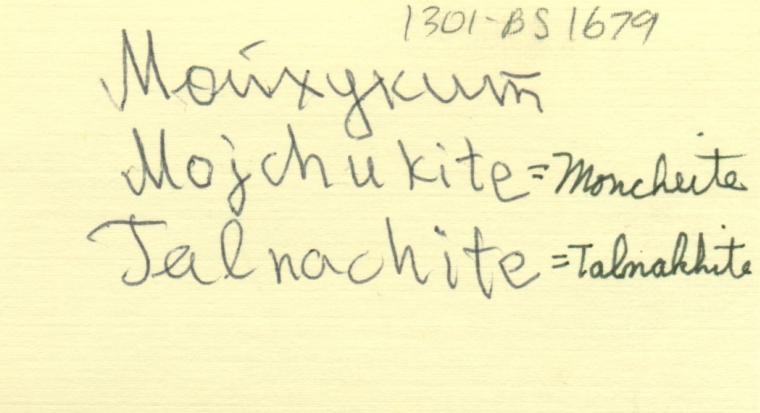 1301-BS1679
Мойхукит
Mojchukite = Moncheite
Talnachite = Talnakhite